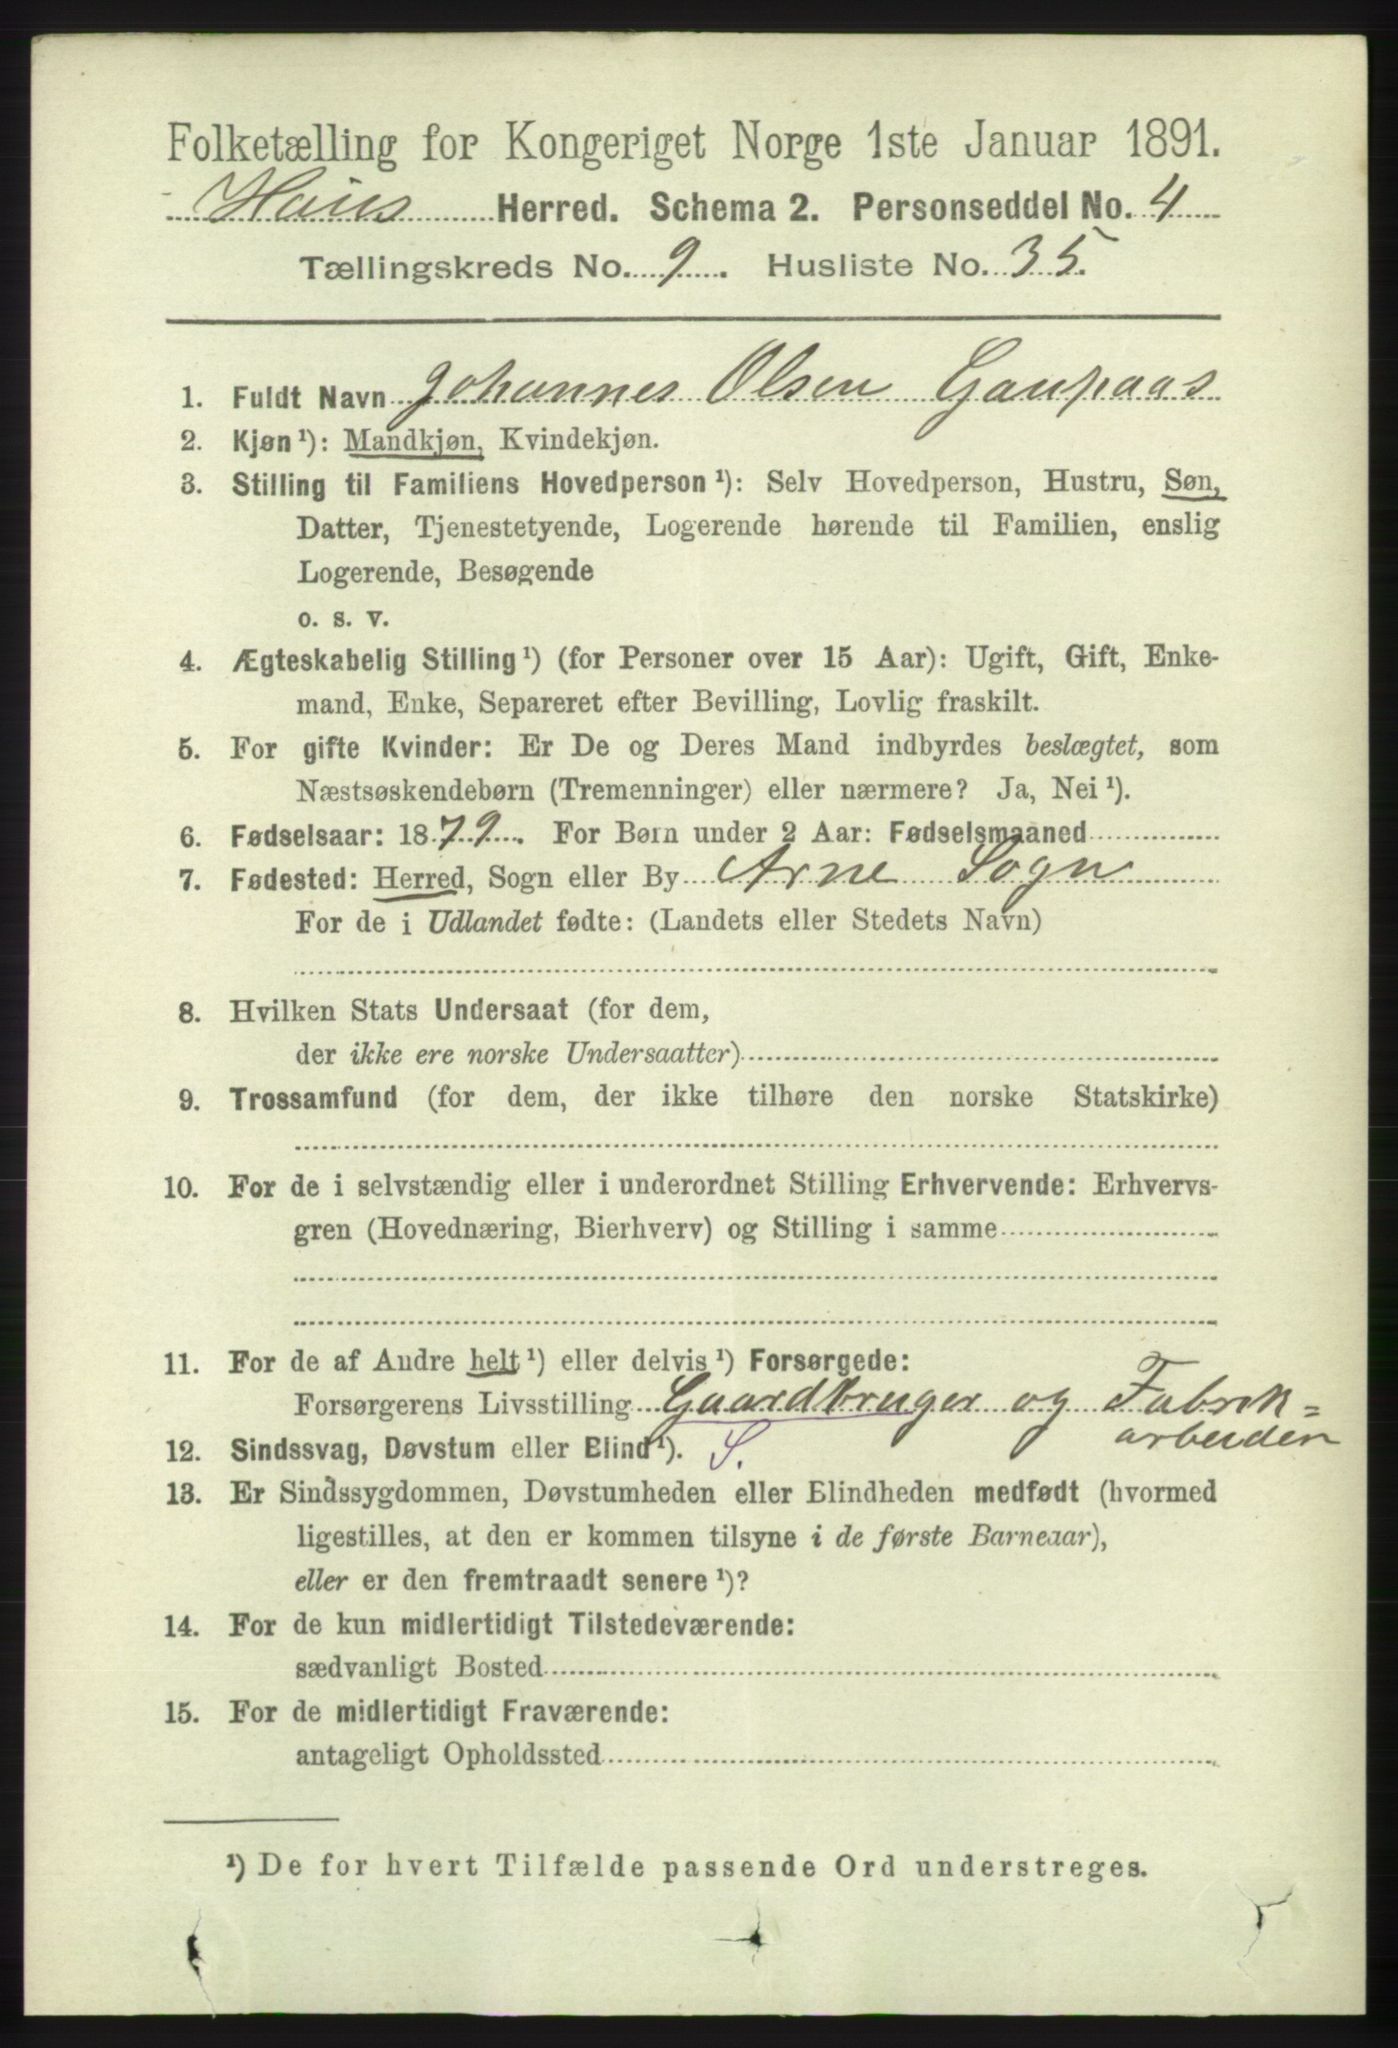 Folketælling for Kongeriget Norge 1ste Januar 1891.
Haus Herred. Schema 2. Personseddel No. 4
Tællingskreds No. 9. Husliste No. 35.
1. Fuldt Navn Johannes Olsen Gaupaas
2. Kjøn ¹): Mandkjøn, Kvindekjøn.
3. Stilling til Familiens Hovedperson ¹): Selv Hovedperson, Hustru, Søn,
Datter, Tjenestetyende, Logerende hørende til Familien, enslig
Logerende, Besøgende
o. s. v.
4. Ægteskabelig Stilling ¹) (for Personer over 15 Aar): Ugift, Gift, Enke-
mand, Enke, Separeret efter Bevilling, Lovlig fraskilt.
5. For gifte Kvinder: Er De og Deres Mand indbyrdes beslægtet, som
Næstsøskendebørn (Tremenninger) eller nærmere? Ja, Nei ¹).
6. Fødselsaar: 1879. For Børn under 2 Aar: Fødselsmaaned
7. Fødested: Herred, Sogn eller By Arne Sogn
For de i Udlandet fødte: (Landets eller Stedets Navn)
8. Hvilken Stats Undersaat (for dem,
der ikke ere norske Undersaatter)
9. Trossamfund (for dem, der ikke tilhøre den norske Statskirke)
10. For de i selvstændig eller i underordnet Stilling Erhvervende: Erhvervs-
gren (Hovednæring, Bierhverv) og Stilling i samme
11. For de af Andre helt ¹) eller delvis ¹) Forsørgede:
Forsørgerens Livsstilling Gaardbruger og Fabrik=
arbeider
12. Sindssvag, Døvstum eller Blind ¹). S.
13. Er Sindssygdommen, Døvstumheden eller Blindheden medfødt (hvormed
ligestilles, at den er kommen tilsyne i de første Barneaar),
eller er den fremtraadt senere ¹)?
14. For de kun midlertidigt Tilstedeværende:
sædvanligt Bosted
15. For de midlertidigt Fraværende:
antageligt Opholdssted
¹) De for hvert Tilfælde passende Ord understreges.